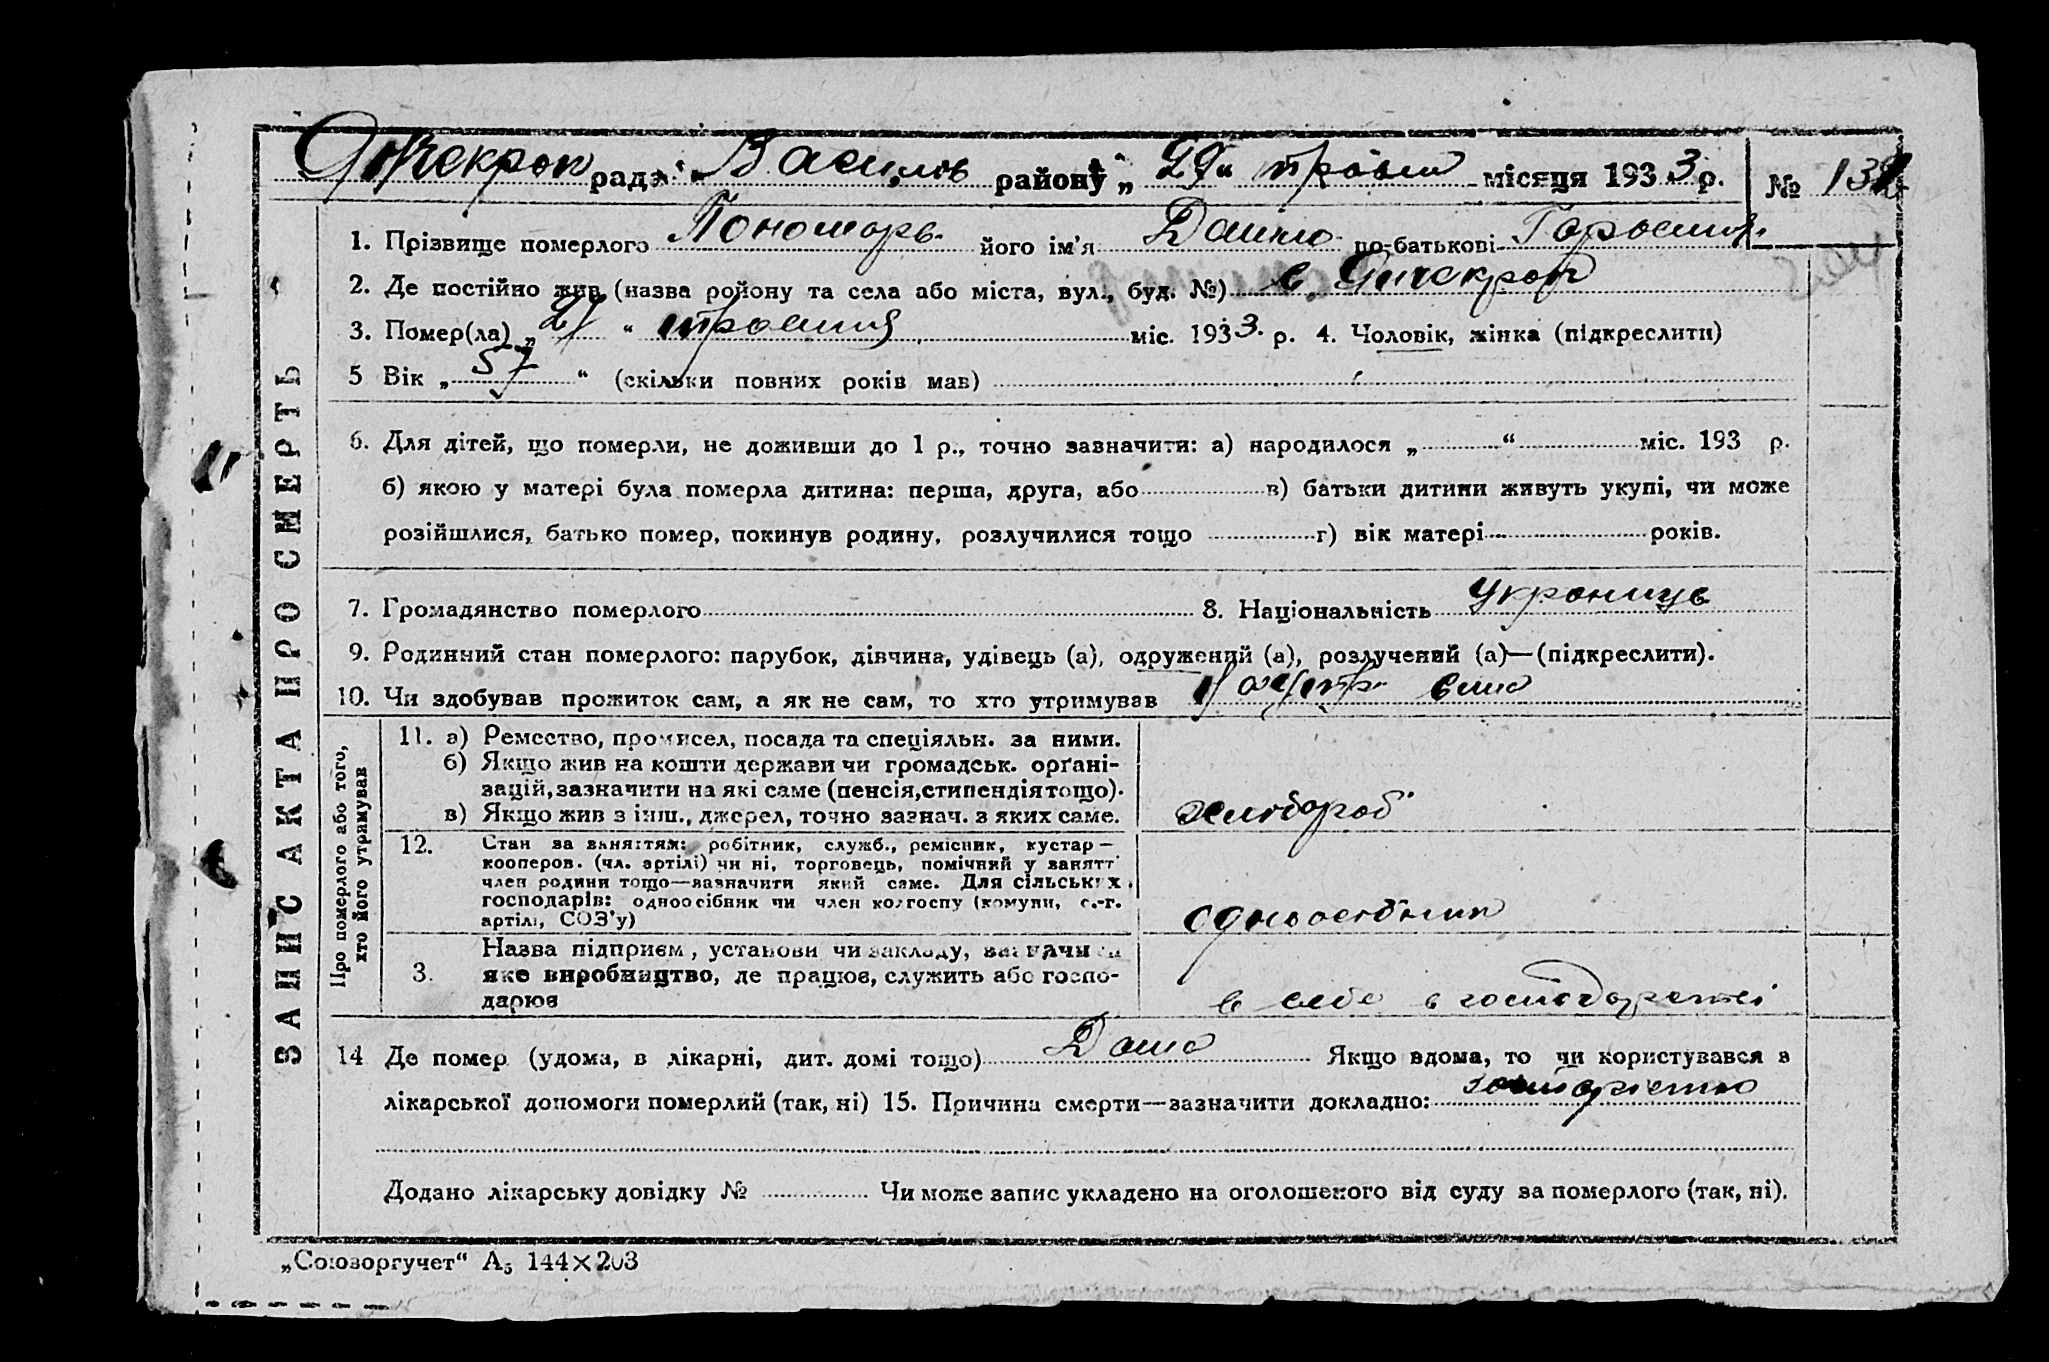 Янчекрак рада Василів району „ 29 “ травня місяця 1933 р. № 138
1. Прізвище померлого Пономарь його ім’я Данило по-батькові Герасим.
2. Де постійно жив (назва ройону та села або міста, вул., буд. №) в Янчекрак
3. Помер(ла) „ “ травня міс. 1933 р. 4. Чоловік, жінка (підкреслити)
5 Вік „ 57 “ (скільки повних років мав)
6. Для дітей, що померли, не доживши до 1 р., точно зазначити: а) народилося „ “ міс. 193 р.
б) якою у матері була померла дитина: перша, друга, або в) батьки дитини живуть укупі, чи може
розійшлися, батько помер, покинув родину, розлучилися тощо г) вік матері років.
7. Громадянство померлого 8. Національність украинць
9. Родинний стан померлого: парубок, дівчина, удівець (а), одружений (а), розлучений (а)—(підкреслити).
10. Чи здобував прожиток сам, а як не сам, то хто утримував
ЗАПИС АКТА ПРО СМЕРТЬ
Про померлого або того, хто його утримував
11. а) Ремество, промисел, посада та спеціяльн. за ними.
б) Якщо жив на кошти держави чи громадськ. орґані-
зацій, зазначити на які саме (пенсія, стипендія тощо).
в) Якщо жив з інш., джерел, точно зазнач. з яких саме.
хлібороб
12. Стан за заняттям: робітник, служб., ремісник, кустар—
кооперов. (чл. артілі) чи ні, торговець, помічний у занятт
член родини тощо—зазначити який саме. Для сільських
господарів: одноосібник чи член колгоспу (комуни, с.-г.
артілі, СОЗ’у)
одноосібник
3. Назва підприєм., установи чи закладу, зазначи
яке виробництво, де працює, служить або госпо-
дарює
в себе в господарстві
14 Де помер (удома, в лікарні, дит. домі тощо) Дома Якщо вдома, то чи користувався в
лікарської допомоги померлий (так, ні) 15. Причина смерти—зазначити докладно:
Додано лікарську довідку № Чи може запис укладено на оголошеного від суду за померлого (так, ні).
„Союзоргучет“ А5 144×203